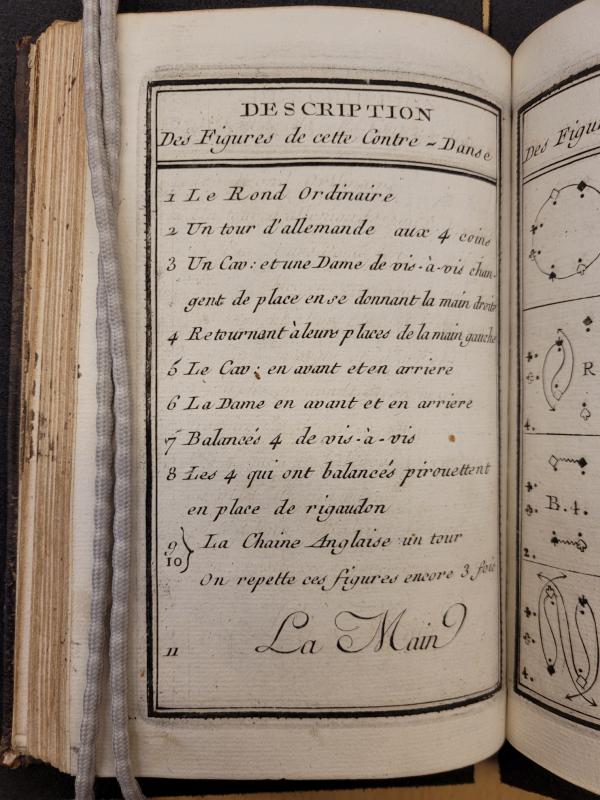 DESCRIPTION
Des Figures de cette Contre-Danse
1 Le Rond Ordinaire
2 Un tour d'allemande aux 4 coins
3 Un Cav: et une Dame de vis-à-vis chan-
gent de place en se donnant la main droite
4 Retournant à leurs places de la main gauche
5 Le Cav: en avant et en arriere
6 La Dame en avant et en arriere
7 Balancés 4 de vis-à-vis
8 Les 4 qui ont balancés pirouettent
en place de rigaudon
9 La Chaine Anglaise un tour
10
On repette ces figures encore 3 fois
11 La Main
Des Figu
R
4.
B.4.
2.
4.